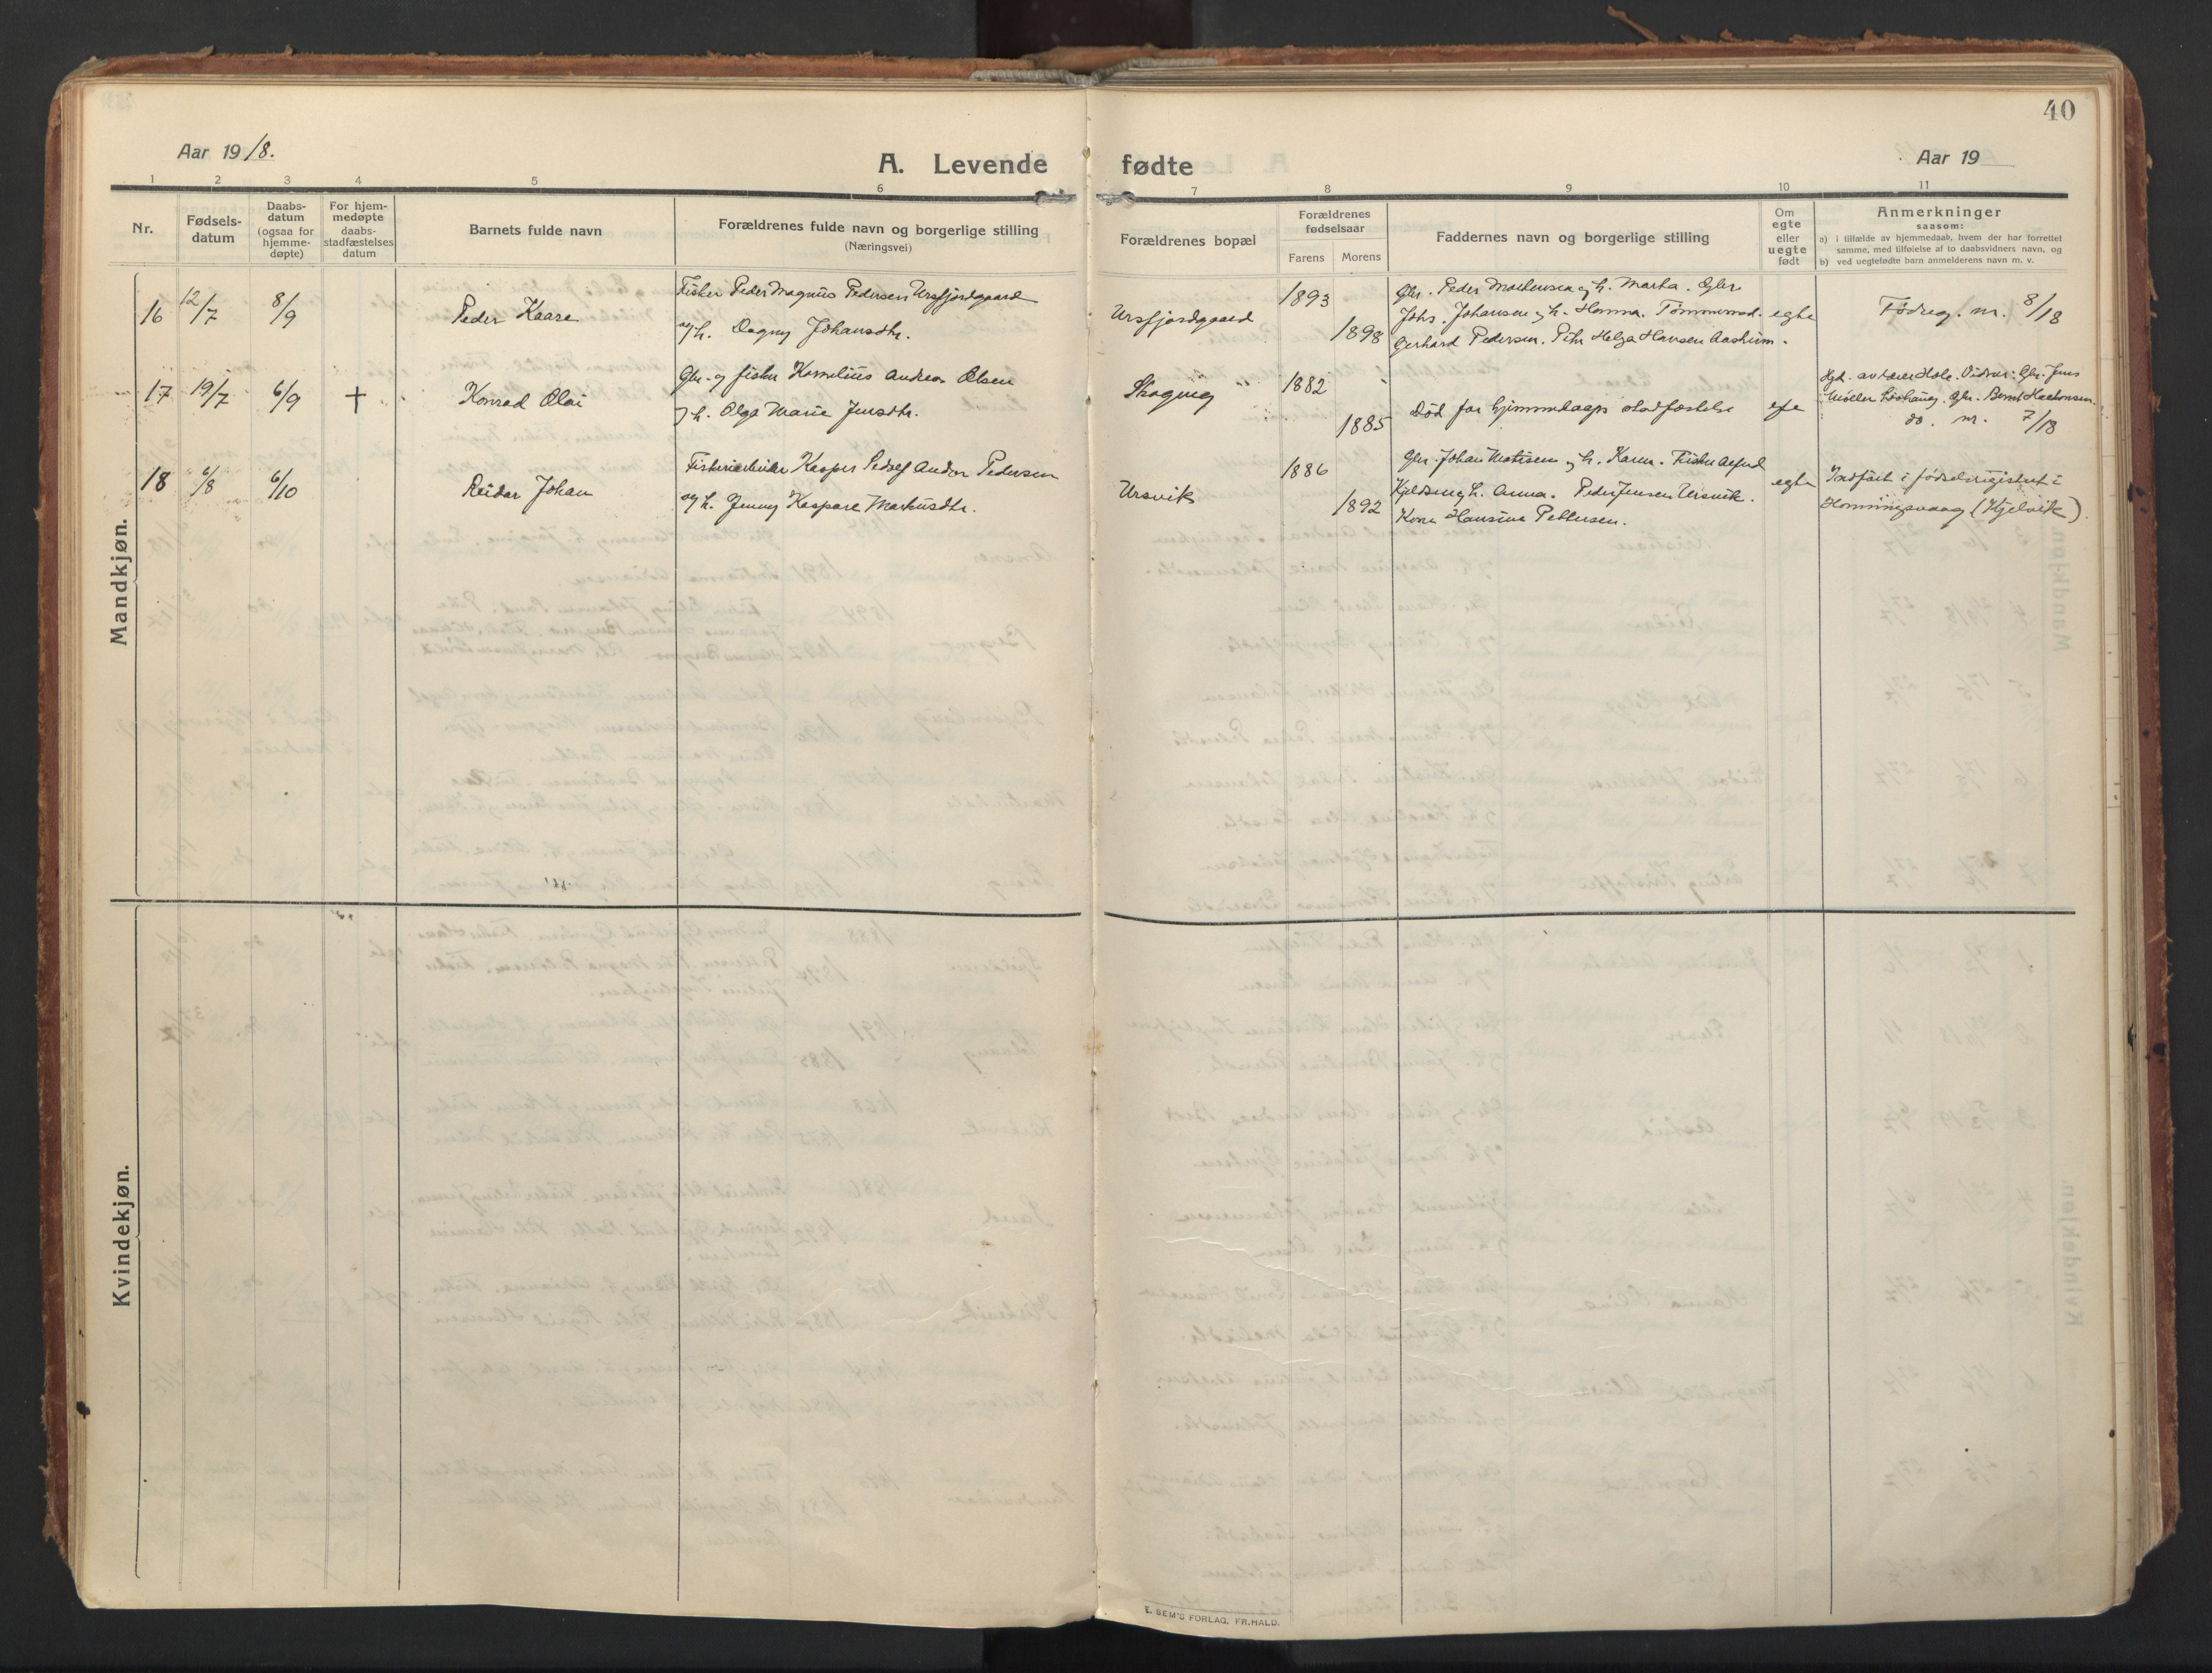 40
Aar 1918.
A. Levende fødte
Aar 19
1 2 3 4 5 6 7 8 9 10 11
Nr.
Fødsels-
datum
Daabs-
datum
(ogsaa for
hjemme-
døpte)
For hjem-
medøpte
daabs-
stadfæstelses
datum
Barnets fulde navn
Forældrenes fulde navn og borgerlige stilling
(Næringsvei)
Forældrenes bopæl
Forældrenes
fødselsaar
Farens Morens
Faddernes navn og borgerlige stilling
Om
egte
eller
uegte
født
Anmerkninger
saasom:
a) i tilfælde av hjemmedaab, hvem der har forrettet
samme, med tilføielse af to daabsvidners navn, og
b) ved uegtefødte barn anmelderens navn m. v.
Mandkjøn.
16 12/7 8/9 Peder Kaare
Fisker Peder Magnus Pedersen Ursfjordgaard
og h. Dagny Johansdtr.
Ursfjordgaard 1893 1898
Gbr. Peder og h. Marta. Gbr.
Johs. Johansen og h. Hanna.
Gerhard Pedersen. Pike Helga Hansen Aasheim.
egte
Fødreg. nr. 8/18
17 19/7 6/9 † Konrad Olai
Gbr. og fisker Kornelius Andreas Olsen
og h. Olga Marie Jensdtr.
1882 1885
Død før hjemmedaaps stadfæstelse
Hjd. av Hole. Vidner: Gbr. Jens
Gbr. Bernt
do. nr. 7/18
18 6/8 6/10 Reidar Johan
Kasper Andor Pedersen
og h. Jenny Kaspara Markusdtr.
Ursvik 1886 1892
Gbr. Johan og h. Karen. Fisker
og h. Anna. Peder Jensen Ursvik.
Kone Hansine Pettersen.
egte
Indført i fødselsregistret i
Honningsvaag (Kjelvik).
Kvindekjøn.
E. SEM'S FORLAG, FR.HALD.